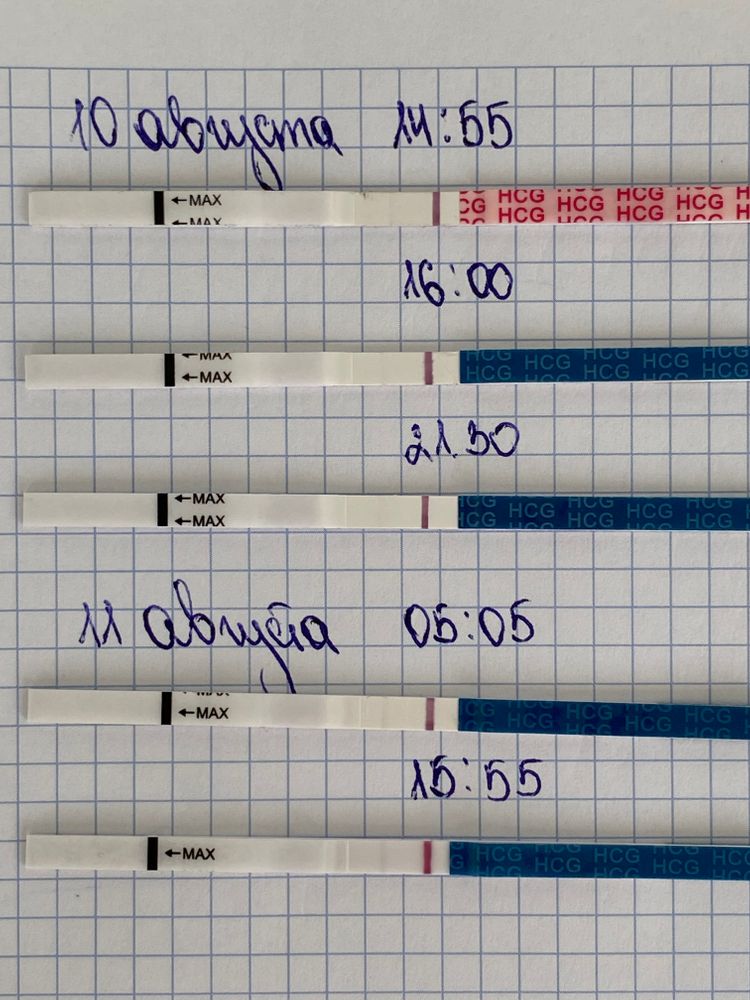 10 августа 14:55
←MAX
←MAX
HCG HCG HCG HCG
HCG HCG HCG HCG
16:00
←MAX
←MAX
HCG HCG HCG HCG
HCG HCG HCG
21.30
←MAX
←MAX
HCG HCG HCG HCG
HCG HCG HCG HCG
11 августа 05:05
←MAX
HCG HCG HCG HCG
HCG HCG HCG HCG
15:55
←MAX
HCG HCG HCG HCG
HCG HCG HCG